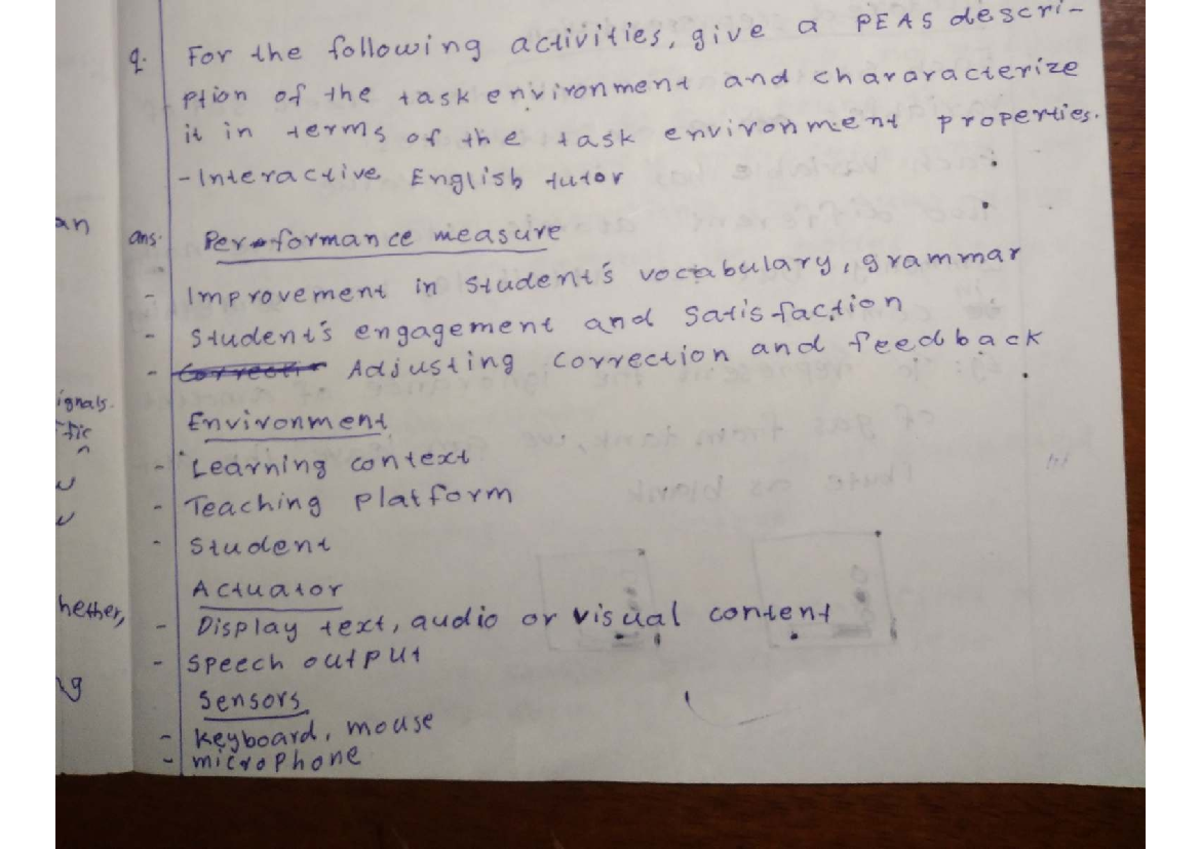 q. For the following activities, give a PEAS descri-
ption of the task environment and chararacterize
it in terms of the task environment properties.
- Interactive English tutor
an
ans. Performance measure
- Improvement in student's vocabulary, grammar
- Student's engagement and satisfaction
- Adjusting correction and feedback
ignals.
Environment
- Learning context
- Teaching platform
- Student
Actuator
hether,
- Display text, audio or visual content
- Speech output
ng
Sensors
- keyboard, mouse
- microphone